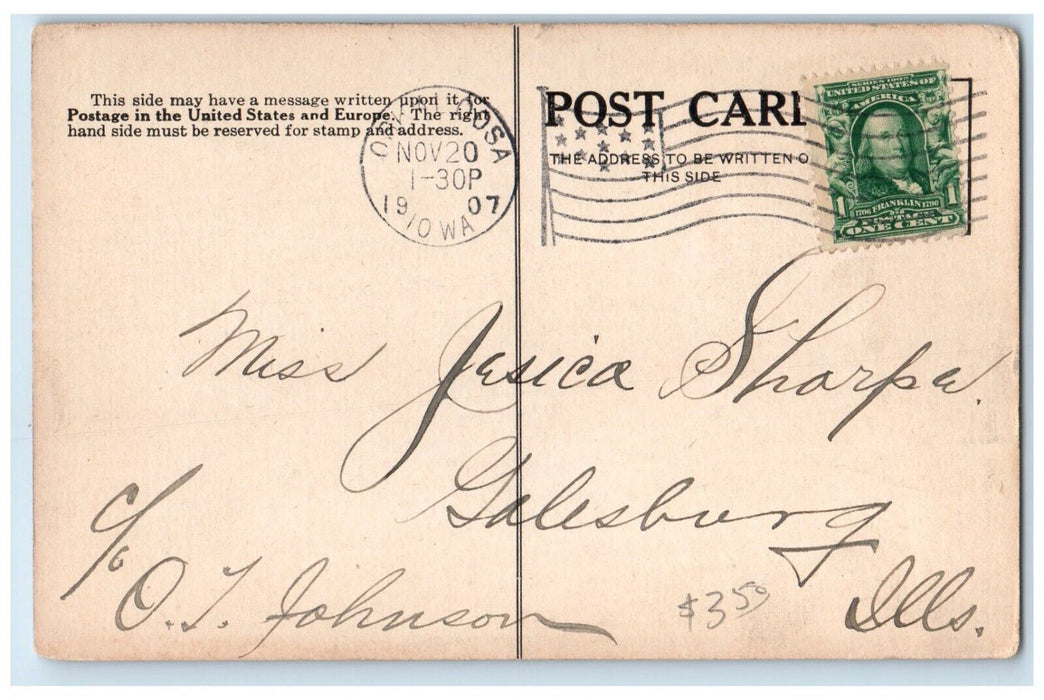 This side may have a message written upon it for
Postage in the United States and Europe. The right
hand side must be reserved for stamp and address.
OSKALOOSA
NOV 20
1-30P
1907
IOWA
POST CARD
THE ADDRESS TO BE WRITTEN O
THIS SIDE
SERIES 1902
UNITED STATES OF
AMERICA
1 1
1706 FRANKLIN 1790
POSTAGE
ONE CENT
Miss Jesica Sharpe.
Galesburg
Ills.
c/o
O. T. Johnson
$3.50